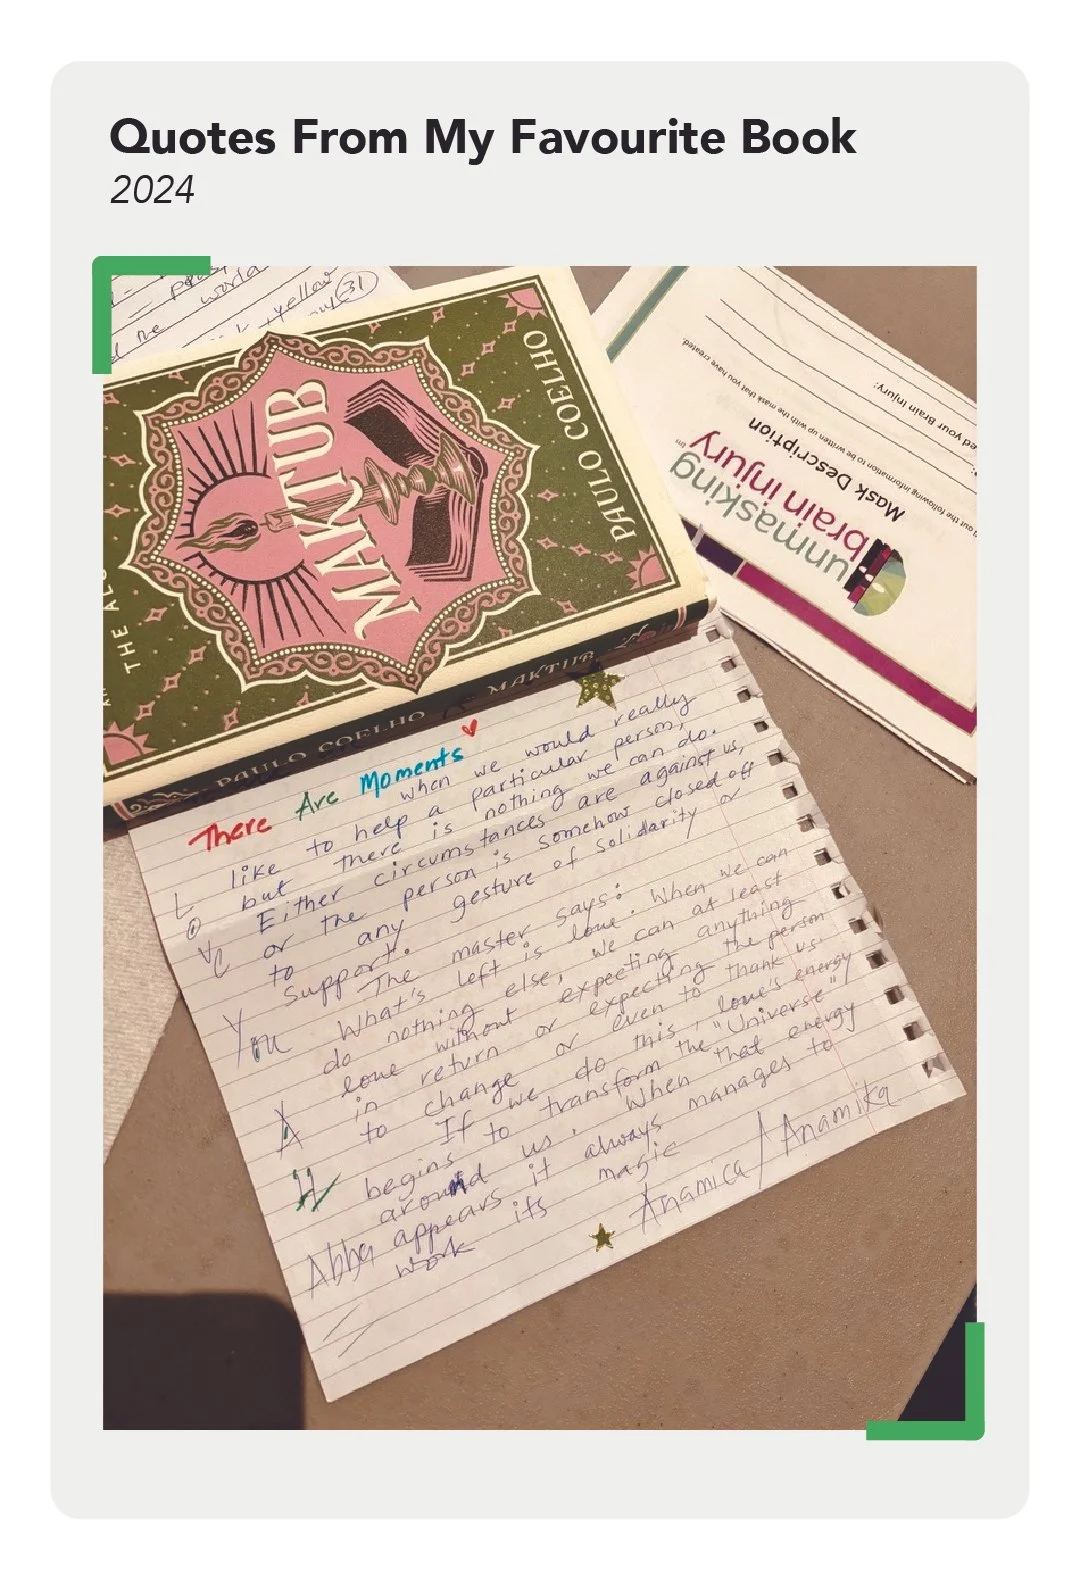 Quotes From My Favourite Book
2024
= 
world
the
yellow
31
MAKTUB
PAULO COELHO
THE ALC
PAULO COELHO
MAKTUB
unmasking
brain injury
Mask Description
out the following information to be written up with the mask that you have created.
ed your Brain Injury:
There Are Moments
when we would really
like to help a particular person,
but there is nothing we can do.
Either circumstances are against us,
or the person is somehow closed off
to any gesture of solidarity or
support.
The master says:
What's left is love. When we can
do nothing else, we can at least
love without expecting anything
in return or expecting the person
to change or even to thank us.
If we do this, love's energy
begins to transform the "Universe"
around us. When that energy
appears it always manages to
work its magic
Anamica / Anamika
L
You
Abha